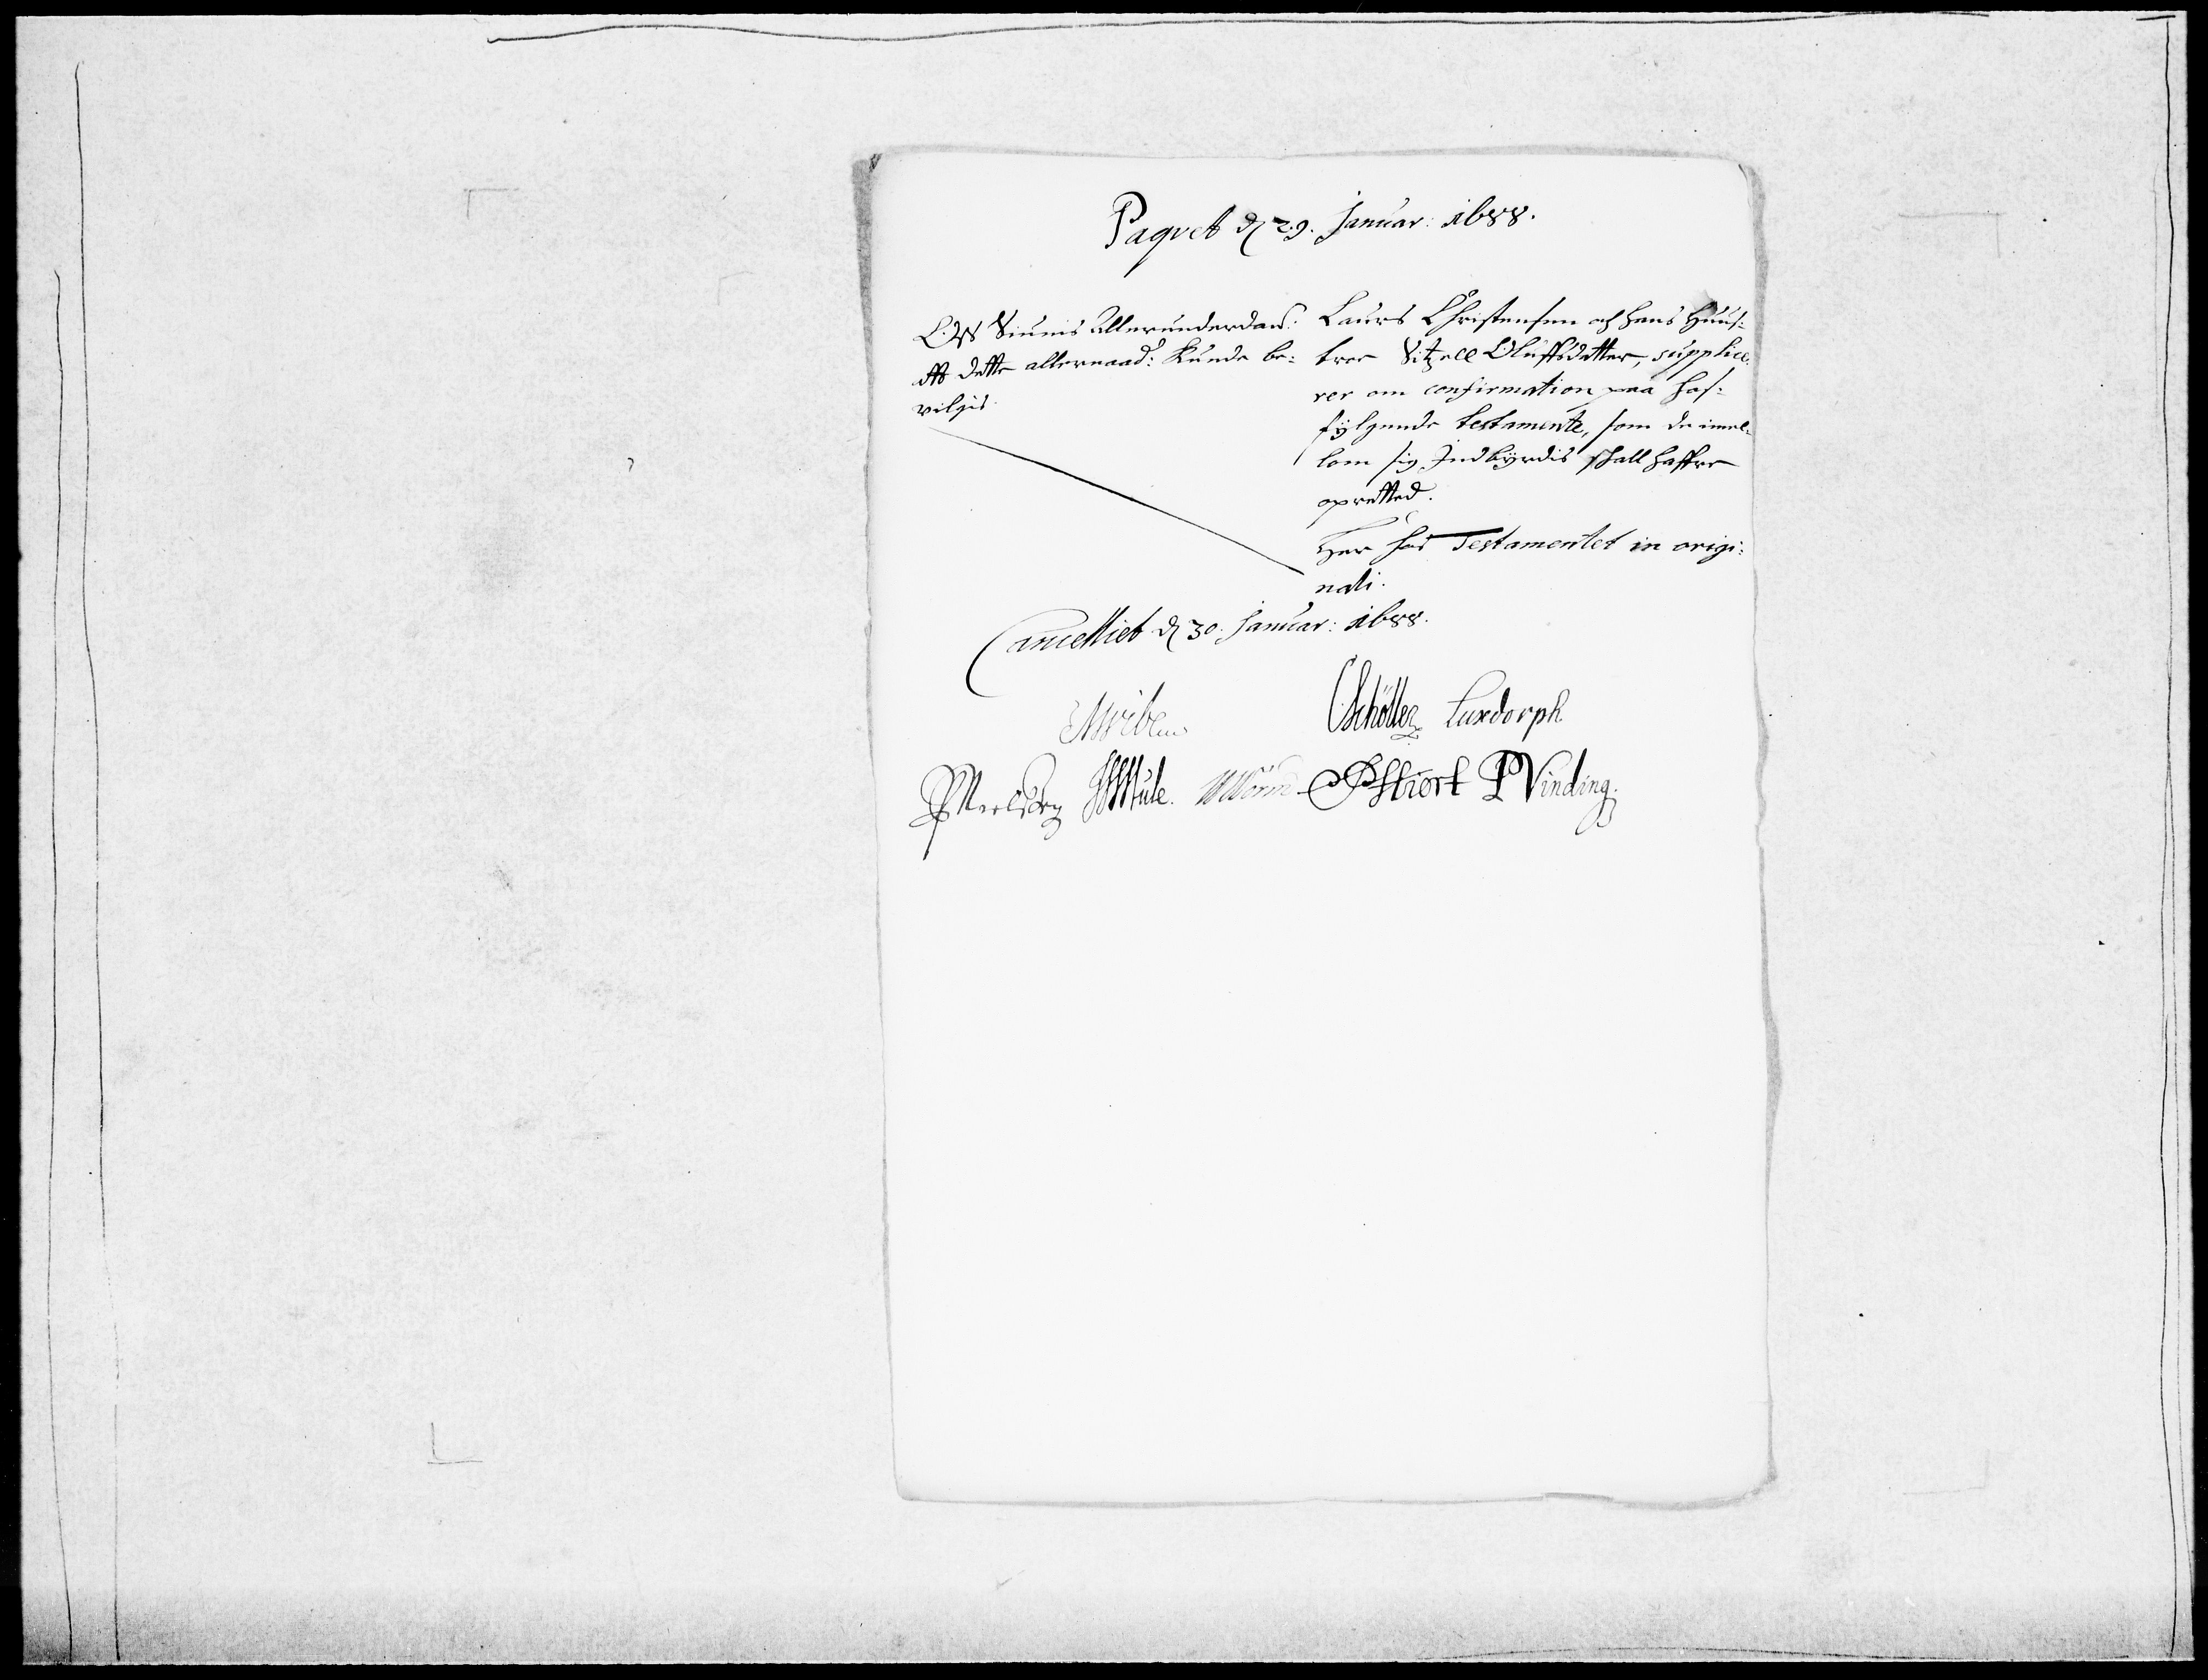 Paqvet d 29. Januar: 1688.
Oss Siunis Allerunderdan:
att dette allernaad: Kunde be-
vilgis.
Laurs Christensen och hans Huus-
troe Sitzell Oluffsdatter, supplice-
rer om confirmation paa hos-
fylgende testamente, som de imel-
lom sig Indbyrdis skall haffve
oprettet.
Her hos Testamentet in origi-
nali.
Cancelliet d 30. Januar: 1688.
MWibe
CSchöller Luxdorph
Mule. WWorm PHiort PVinding.